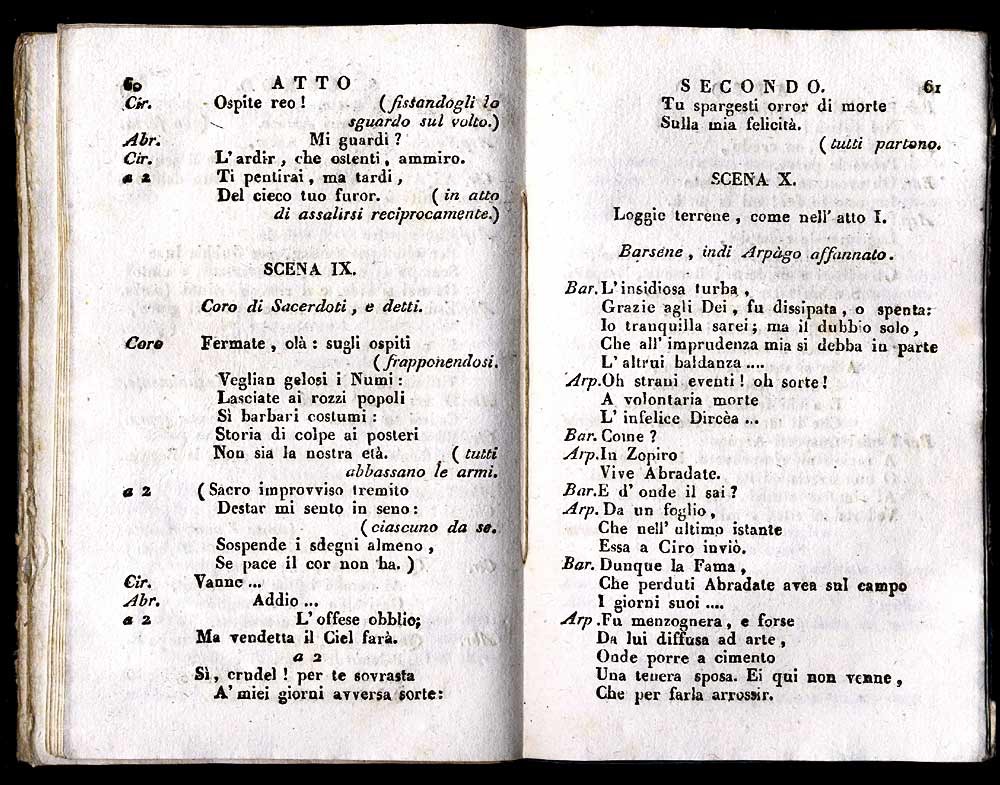 60 ATTO
Cir. Ospite reo ! ( fissandogli lo
sguardo sul volto.)
Abr. Mi guardi ?
Cir. L' ardir , che ostenti , ammiro.
a 2 Ti pentirai , ma tardi ,
Del cieco tuo furor. ( in atto
di assalirsi reciprocamente.)
SCENA IX.
Coro di Sacerdoti , e detti.
Coro Fermate , olà : sugli ospiti
( frapponendosi.
Veglian gelosi i Numi :
Lasciate ai rozzi popoli
Sì barbari costumi :
Storia di colpe ai posteri
Non sia la nostra età. ( tutti
abbassano le armi.
a 2 ( Sacro improvviso tremito
Destar mi sento in seno :
( ciascuno da se.
Sospende i sdegni almeno ,
Se pace il cor non ha. )
Cir. Vanne ...
Abr. Addio ...
a 2 L' offese obblio;
Ma vendetta il Ciel farà.
a 2
Sì, crudel ! per te sovrasta
A' miei giorni avversa sorte:
SECONDO. 61
Tu spargesti orror di morte
Sulla mia felicità.
( tutti partono.
SCENA X.
Loggie terrene , come nell' atto I.
Barsene , indi Arpàgo affannato.
Bar. L' insidiosa turba ,
Grazie agli Dei , fu dissipata , o spenta:
Io tranquilla sarei; ma il dubbio solo,
Che all' imprudenza mia si debba in parte
L' altrui baldanza ....
Arp. Oh strani eventi ! oh sorte !
A volontaria morte
L' infelice Dircèa ...
Bar. Come ?
Arp. In Zopiro
Vive Abradate.
Bar. E d' onde il sai ?
Arp. Da un foglio ,
Che nell' ultimo istante
Essa a Ciro inviò.
Bar. Dunque la Fama ,
Che perduti Abradate avea sul campo
I giorni suoi ....
Arp. Fu menzognera, e forse
Da lui diffusa ad arte ,
Onde porre a cimento
Una tenera sposa. Ei qui non venne ,
Che per farla arrossir.